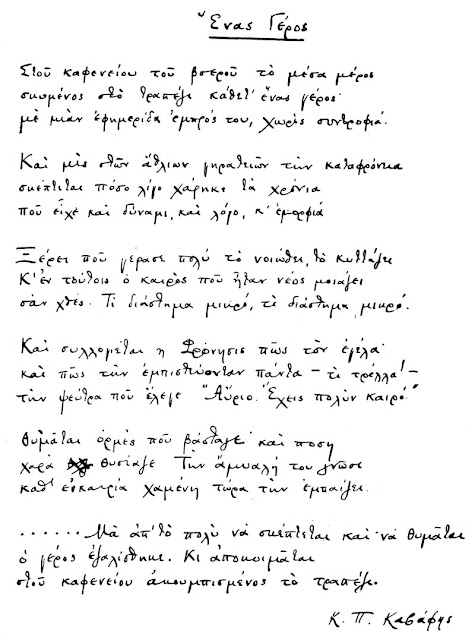 Ἕνας Γέρος
Στοῦ καφενείου τοῦ βοεροῦ τὸ μέσα μέρος
σκυμένος στὸ τραπέζι κάθετ' ἕνας γέρος·
μὲ μιὰν ἐφημερίδα ἐμπρός του, χωρὶς συντροφιά.
Καὶ μὲς στῶν ἄθλιων γηρατειῶν τὴν καταφρόνια
σκέπτεται πόσο λίγο χάρηκε τὰ χρόνια
ποῦ εἶχε καὶ δύναμι, καὶ λόγο, κ' ἐμορφιά.
Ξέρει ποῦ γέρασε πολύ· τὸ νοιώθει, τὸ κυττάζει.
Κ' ἐν τούτοις ὁ καιρὸς ποῦ ἦταν νέος μοιάζει
σὰν χθές. Τί διάστημα μικρό, τί διάστημα μικρό.
Καὶ συλλογιέται ἡ Φρόνησις πῶς τὸν ἐγέλα·
καὶ πῶς τὴν ἐμπιστεύονταν πάντα — τί τρέλλα! —
τὴν ψεύτρα ποῦ ἔλεγε· "Αὔριο. Ἔχεις πολὺν καιρό."
Θυμᾶται ὁρμὲς ποῦ βάσταγε· καὶ πόση
χαρὰ θυσίαζε. Τὴν ἄμυαλή του γνῶσι
κάθ' εὐκαιρία χαμένη τώρα τὴν ἐμπαίζει.
...... Μὰ ἀπ' τὸ πολὺ νὰ σκέπτεται καὶ νὰ θυμᾶται
ὁ γέρος ἐζαλίσθηκε. Κι ἀποκοιμᾶται
στοῦ καφενείου ἀκουμπισμένος τὸ τραπέζι.
Κ. Π. Καβάφης